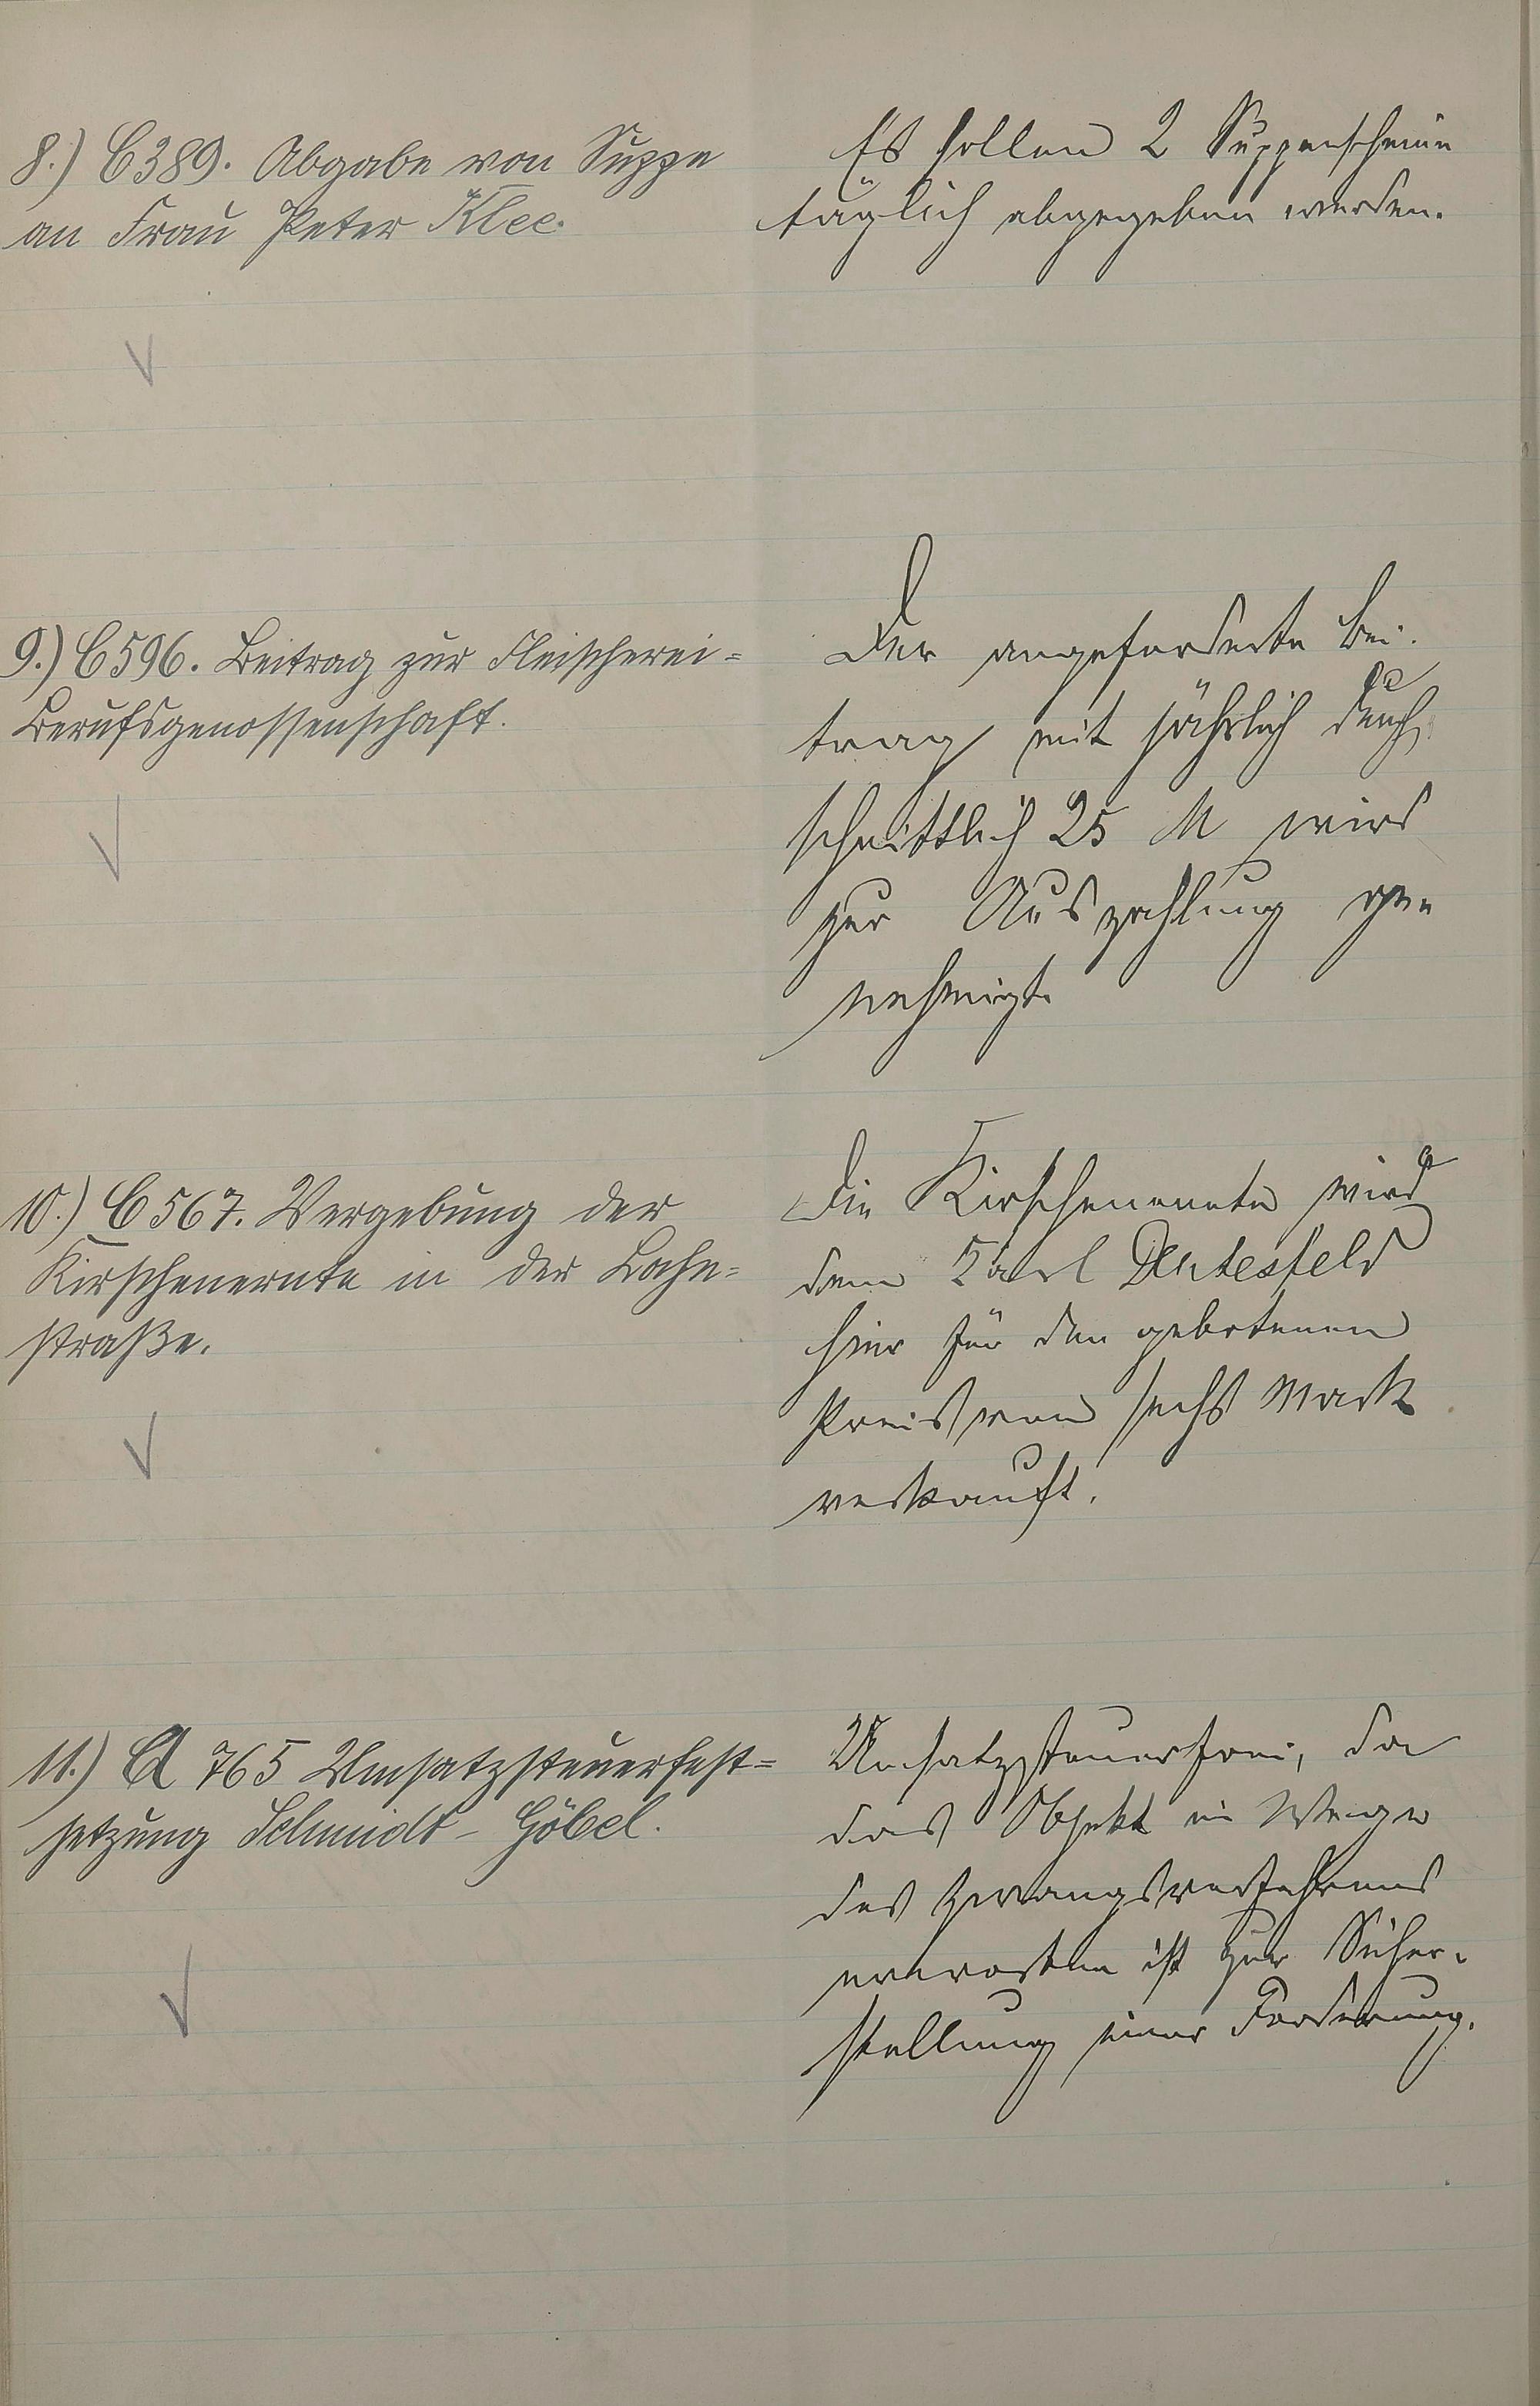 8.) C389. Abgabe von Suppe
an Frau Peter Klee.
Es sollen 2 Suppenscheine
täglich abgegeben werden.
9.) C596. Beitrag zur Fleischerei=
Berufsgenossenschaft.
Der angeforderte Bei-
trag mit jährlich durch
schnittlich 25 M wird
zur Auszahlung ge-
nehmigt.
10.) C567. Vergebung der
Kirschenernte in der Lahn=
straße.
Die Kirschenernte wird
dem Karl
hier für den gebotenen
Preis von sechs Mark
verkauft.
11.) A 765 Umsatzsteuerfest=
setzung Schmidt - Göbel.
Umsatzsteuerfrei, da
das Objekt im Wege
des Zwangsverfahrens
erworben ist zur Sicher-
stellung einer Forderung.